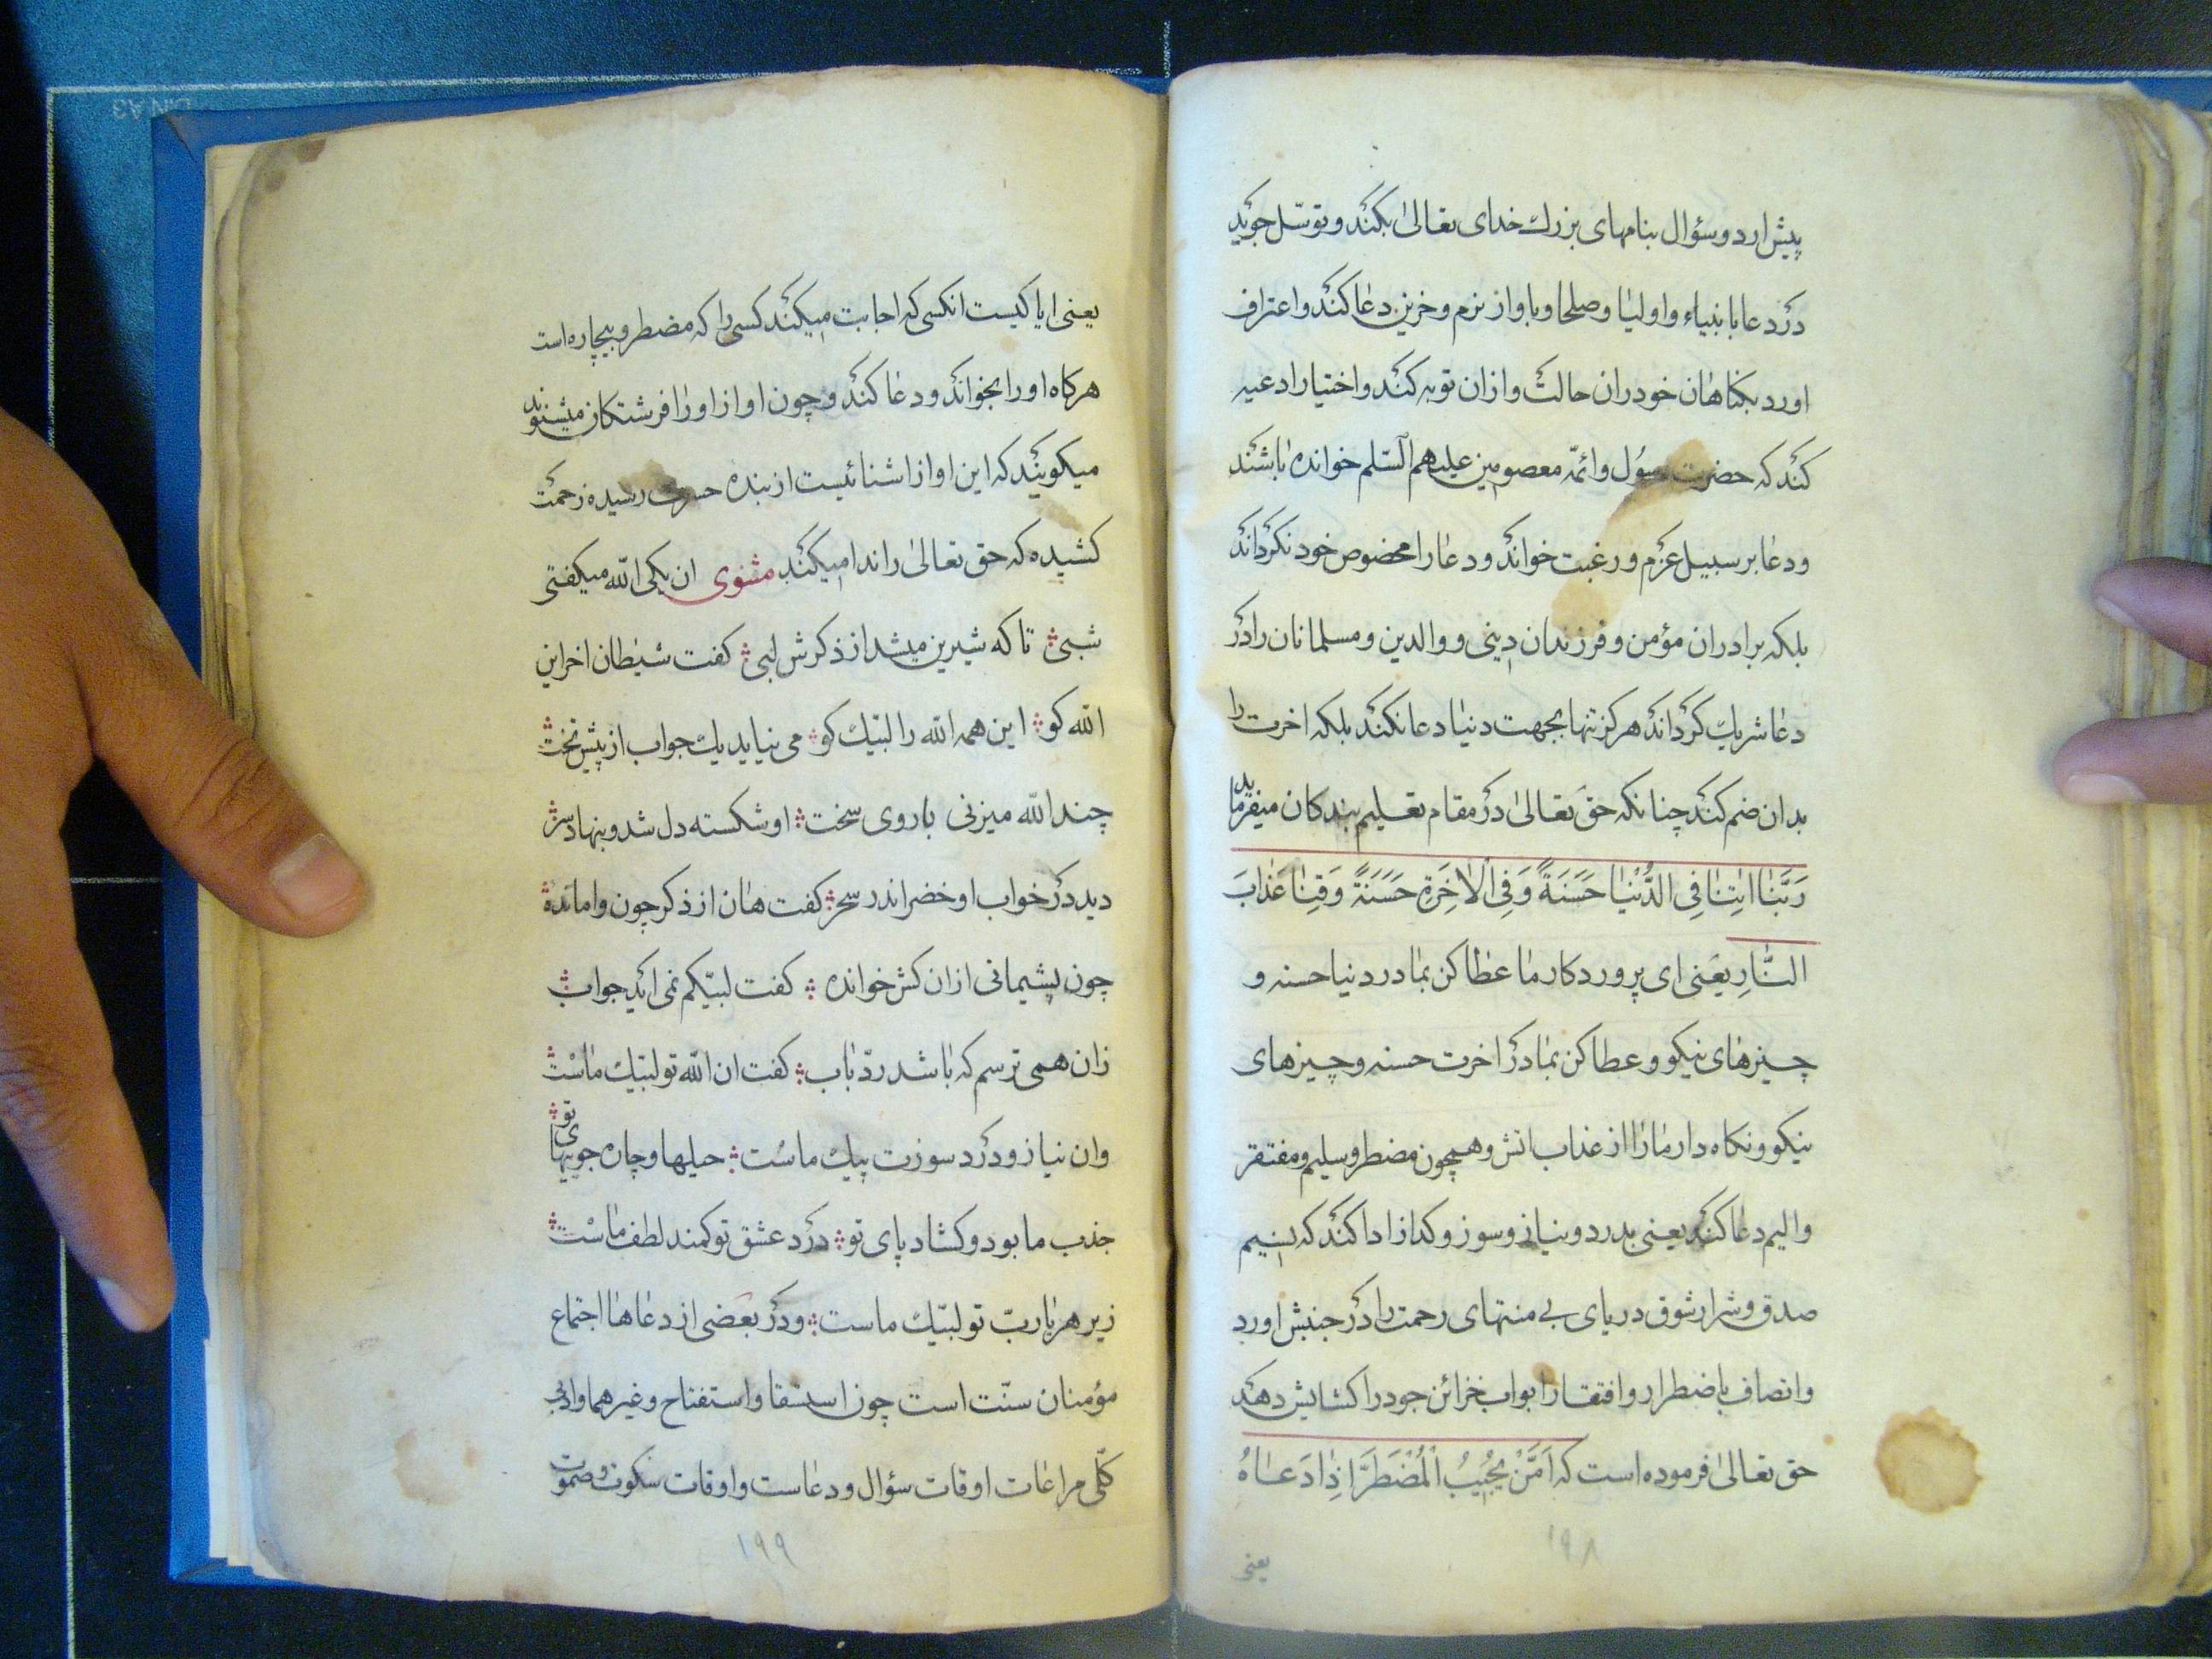 پیش ارد و سؤال بنامهای بزرك خدای تعالیٰ بکند و توسّل جوید
در دعا با بنیاء و اولیا و صلحا و باواز نرم و خزین دعا کند و اعتراف
اورد بکناهان خود دران حالت و ازان توبه کند و اختیار ادعیه
کند که حضرت رسول و ائمّه معصومین علیهم السّلم خوانده باشند
و دعا بر سبیل عزم و رغبت خواند و دعا را مخصوص خود نکرداند
بلکه برادران مؤمن و فرزندان دینی و والدین و مسلمانان را در
دعا شریك کرداند هرکز تنها بجهت دنیا دعا نکند بلکه اخرت را
بدان ضم کند چنانکه حق تعالیٰ در مقام تعلیم بندکان میفرماید
رَبَّنَا اتِنَا فِی الدُّنْیَا حَسَنَةً وَفِی الْاٰخِرَةِ حَسَنَةً وَقِنَا عَذَابَ
النَّارِ یعنی ای پروردکار ما عطا کن بما در دنیا حسنه و
چیزهای نیکو و عطا کن بما در اخرت حسنه و چیزهای
نیکو و نکاه دار ما را از عذاب اتش و همچون مضطر و سلیم و مفتقر
والیم دعا کند یعنی بدرد و نیاز و سوز و کداز ادا کند که نسیم
صدق و شرار شوق دریای بی منتهای رحمت را در جنبش اورد
و اتصاف باضطرار و افتقار ابواب خزائن جود را کشایش دهد
حق تعالیٰ فرموده است که اَمَّنْ یُجٖیْبُ الْمُضْطَرَّ اِذَا دَعَاهُ
یعنی
۱۹۸
یعنی ایا کیست انکسی که اجابت میکند کسی را که مضطر و بیچاره است
هرکاه او را بخواند و دعا کند و چون اواز او را فرشتکان میشنوند
میکویند که این اواز اشنائیست از بنده حسرت رسیده زحمت
کشیده که حق تعالیٰ را ندا میکند مثنوی ان یکی الله میکفتی
شبی تا که شیرین میشد از ذکرش لبی کفت شیطان اخر این
الله کو این همه الله را لبّیك کو می نیاید یك جواب از پیش تخت
چند الله میزنی با روی سخت او شکسته دل شد و بنهاد سر
دید در خواب او خضر اندر سحر کفت هان از ذکر چون وامانده
چون پشیمانی ازان کش خوانده کفت لبّیکم نمی اید جواب
زان همی ترسم که باشد ردّ باب کفت ان الله تو لبّیك ماست
وان نیاز و درد سوزت پیك ماست حیلها و چاره جوییهای تو
جذب ما بود و کشاد پای تو درد عشق تو کمند لطف ماست
زیر هر یا ربّ تو لبّیك ماست و در بعضی از دعاها اجتماع
مؤمنان سنّت است چون استسقا و استفتاح و غیرهما و ادب
کلّی مراعات اوقات سؤال و دعاست و اوقات سکوت و صموت
۱۹۹